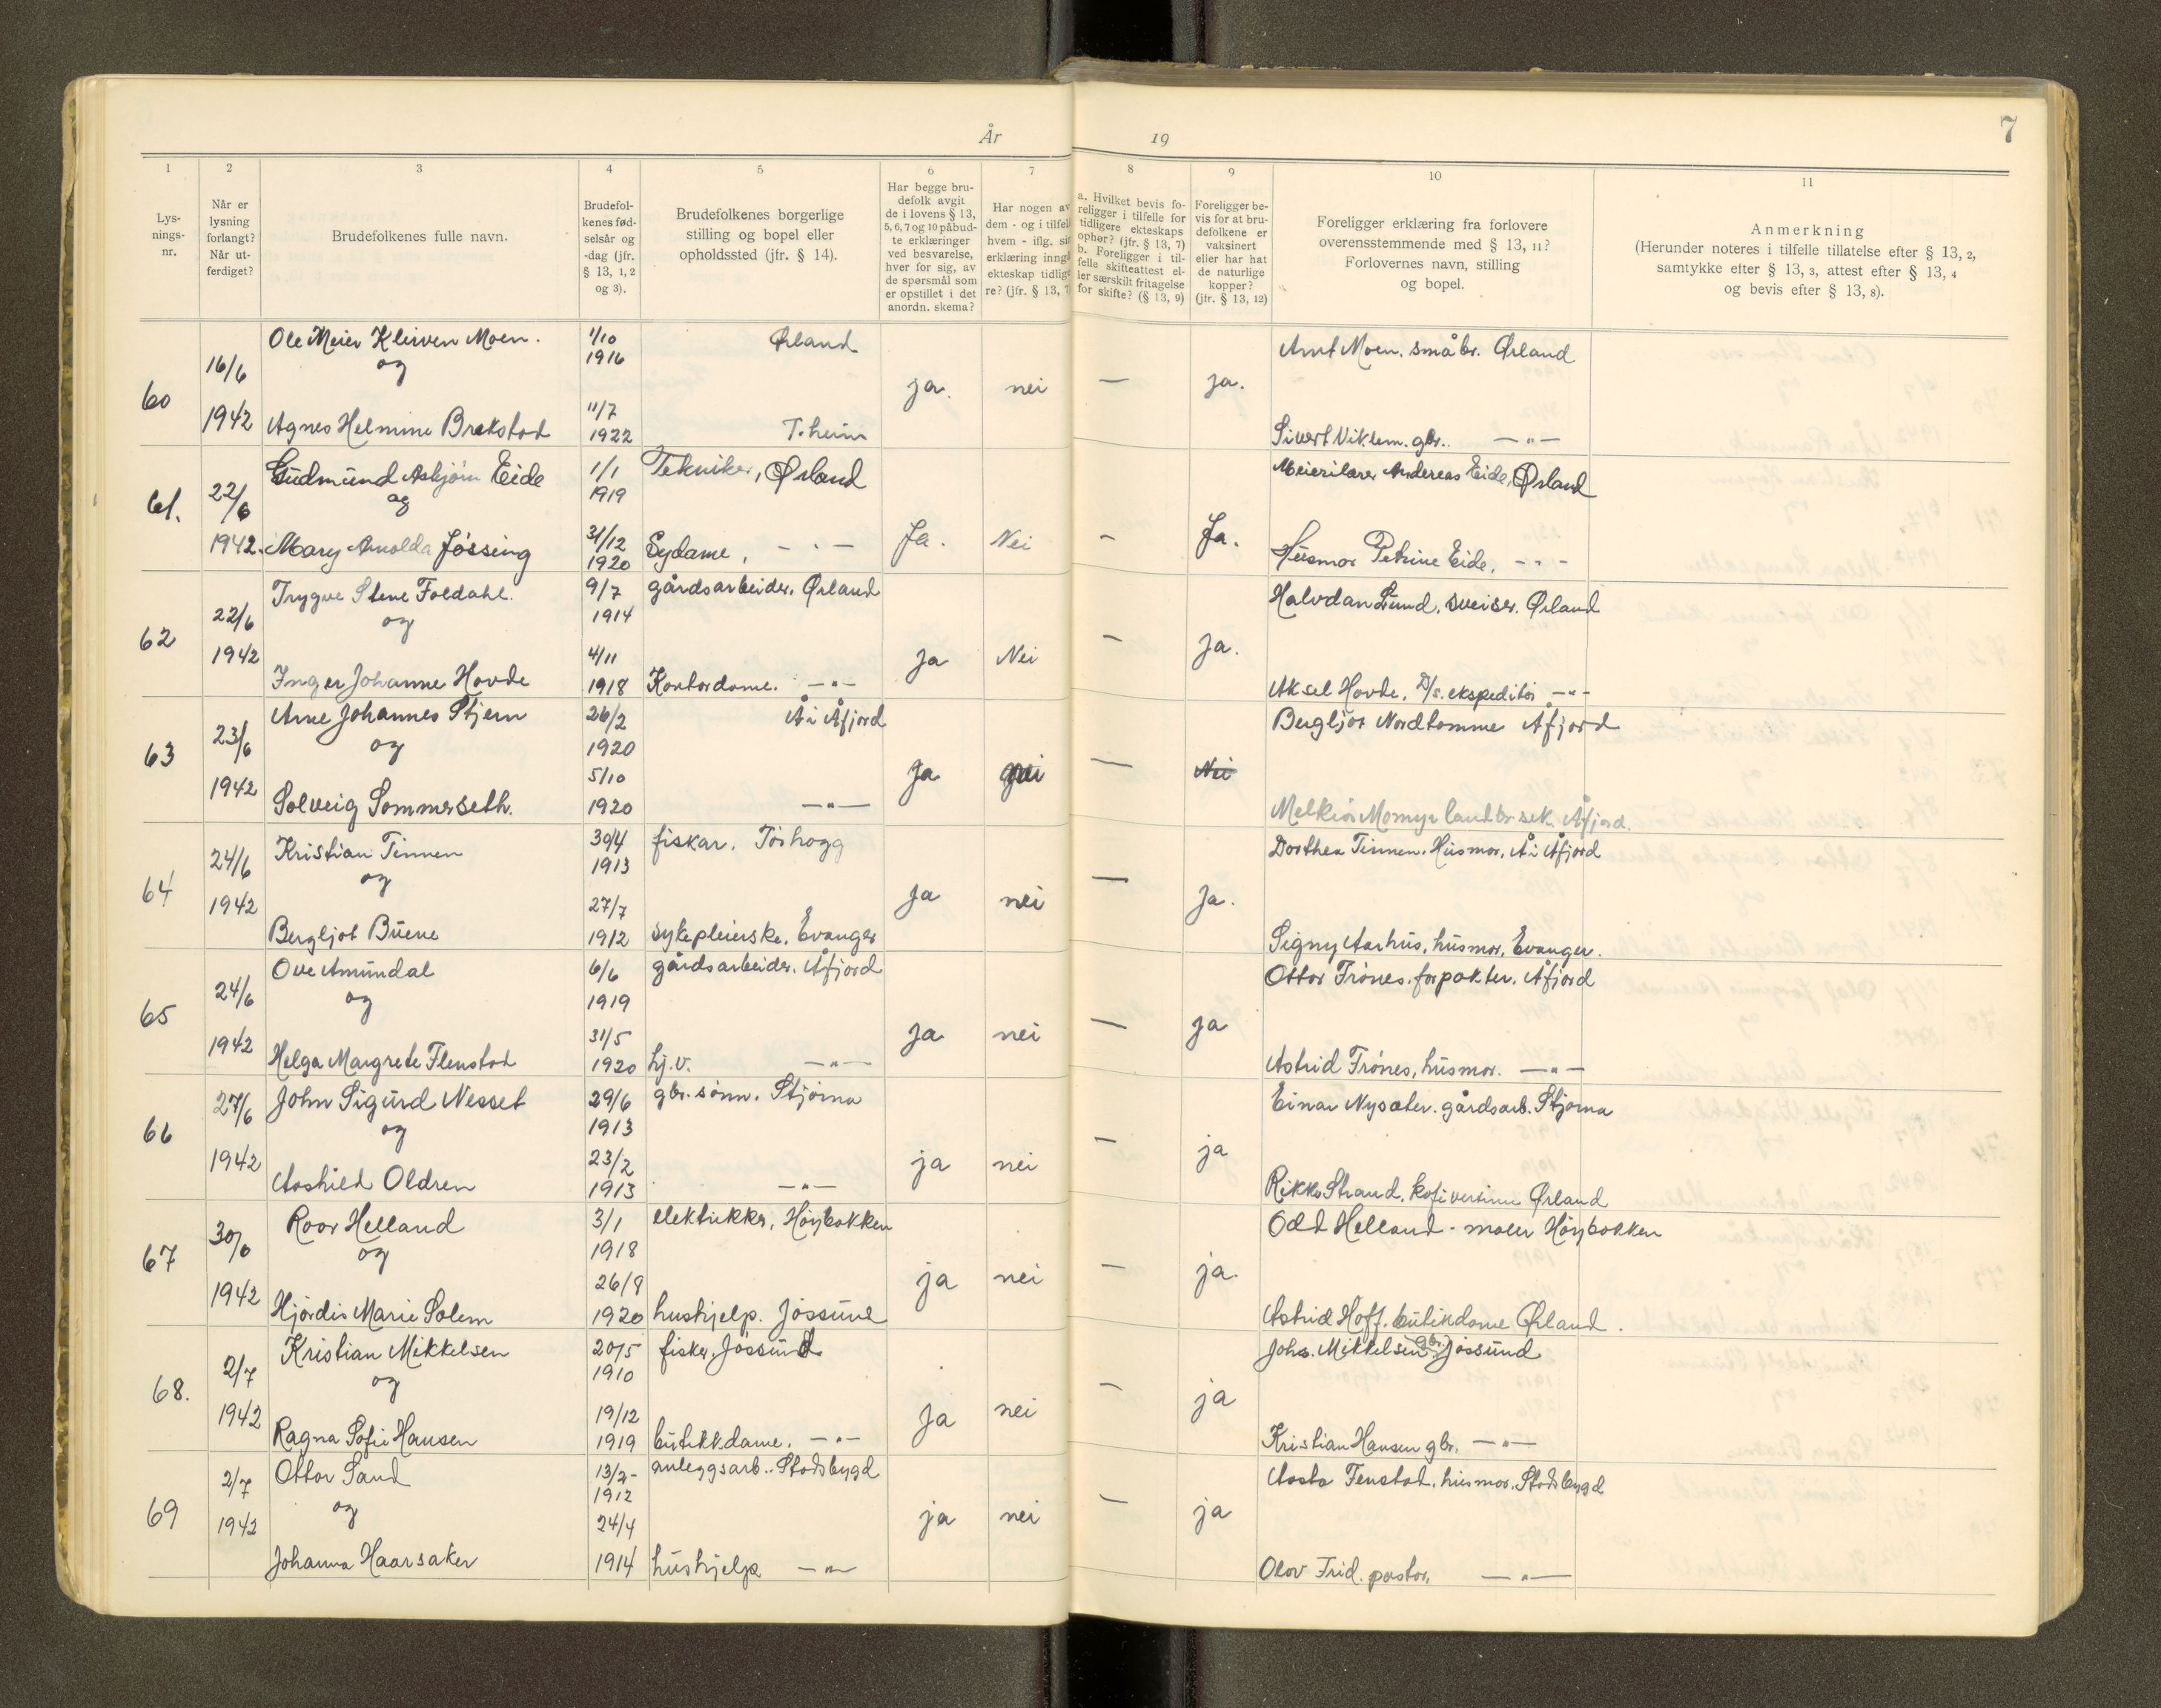 År 19
7
1 2 3 4 5 6 7 8 9 10 11
Lys-
nings-
nr.
Når er
lysning
forlangt?
Når ut-
ferdiget?
Brudefolkenes fulle navn.
Brudefol-
kenes fød-
selsår og
-dag (jfr.
§ 13, 1, 2
og 3).
Brudefolkenes borgerlige
stilling og bopel eller
opholdssted (jfr. § 14).
Har begge bru-
defolk avgit
de i lovens § 13,
5, 6, 7 og 10 påbud-
te erklæringer
ved besvarelse,
hver for sig, av
de spørsmål som
er opstillet i det
anordn. skema?
Har nogen av
dem - og i tilfel
hvem - iflg. si
erklæring inngå
ekteskap tidlige
re? (jfr. § 13, 7
a. Hvilket bevis fo-
religger i tilfelle for
tidligere ekteskaps
ophør? (jfr. § 13, 7)
b. Foreligger i til-
felle skifteattest el-
ler særskilt fritagelse
for skifte? (§ 13, 9)
Foreligger be-
vis for at bru-
defolkene er
vaksinert
eller har hat
de naturlige
kopper?
(jfr. § 13, 12)
Foreligger erklæring fra forlovere
overensstemmende med § 13, 11?
Forlovernes navn, stilling
og bopel.
Anmerkning
(Herunder noteres i tilfelle tillatelse efter § 13, 2,
samtykke efter § 13, 3, attest efter § 13, 4
og bevis efter § 13, 8).
Ole Meier Kliven Moen. 1/10 Ørland Arnt Moen. småbr. Ørland
16/6 og 1916
60 ja. nei — ja.
11/7
1942 Agnes Helmine Brekstad 1922 T.heim Sivert Viklem. gbr. —"—
Gudmund Asbjørn Eide 1/1 Tekniker, Ørland Meierilærer Andereas Eide, Ørland
61. 22/6 og 1919
31/12 Ja. Nei - Ja.
1942. Mary Arnolda Jøssing 1920 Sydame, - " - Husmor Petrine Eide, - " -
Trygve Stene Foldahl. 9/7 gårdsarbeider. Ørland Halvdan Lund, sveiser. Ørland
22/6 og 1914
62 - ja.
1942 4/11 Ja Nei
Inger Johanne Hovde 1918 Kontordame. —"— Aksel Hovde, D/s. ekspeditør —"—
Arne Johannes Stjern 26/2 Å i Åfjord Bergljot Nordtømme Åfjord
23/6 og 1920
63 5/10 Ja nei — Nei
1942 Solveig Sommerseth. 1920 —"— Melkior Momyr landbr. sek. Åfjord.
Kristian Tinnen 30/4 fiskar. Torhogg Dorthea Tinnen. Husmor, Å i Åfjord
24/6 og 1913
64 Ja nei — Ja.
1942 27/7
Bergljot Buene 1912 sykepleierske. Evanger Signy Aarhus, husmor, Evanger.
Ove Amundal 6/6 gårdsarbeider. Åfjord Ottar Trønes. forpakter. Åfjord
24/6 og 1919
65 Ja nei — ja
1942 31/5
Helga Margrete Flenstad 1920 hj.v. —"— Astrid Trønes, husmor. —"—
John Sigurd Nesset 29/6 gbr. sønn. Stjørna Einar Nysæter. gårdsarb. Stjørna
27/6 og 1913
66 - ja
1942 23/2 ja nei
Aashild Oldren 1913 —"— Rikke Strand, kafivertinne Ørland
Roar Helland 3/1 elektrikker, Høybakken Odd Helland - maler Høybakken
30/6 og 1918
67 ja nei — ja.
1942 26/8
Hjørdis Marie Solem 1920 hushjelp. Jøssund Astrid Hoff. butikdame Ørland.
Kristian Mikkelsen 20/5 fisker, Jøssund Johs. Mikkelsen gbr. Jøssund
2/7 og 1910
68. ja nei — ja
1942 19/12
Ragna Sofie Hansen 1919 butikkdame. —"— Kristian Hansen gbr. —"—
Ottar Sand 13/2- anleggsarb.. Stadsbygd Aasta Fenstad. husmor. Stadsbygd
2/7 og 1912
69 24/4 ja nei — ja
1942
Johanna Haarsaker 1914 hushjelp —"— Olav Frid. pastor, —"—